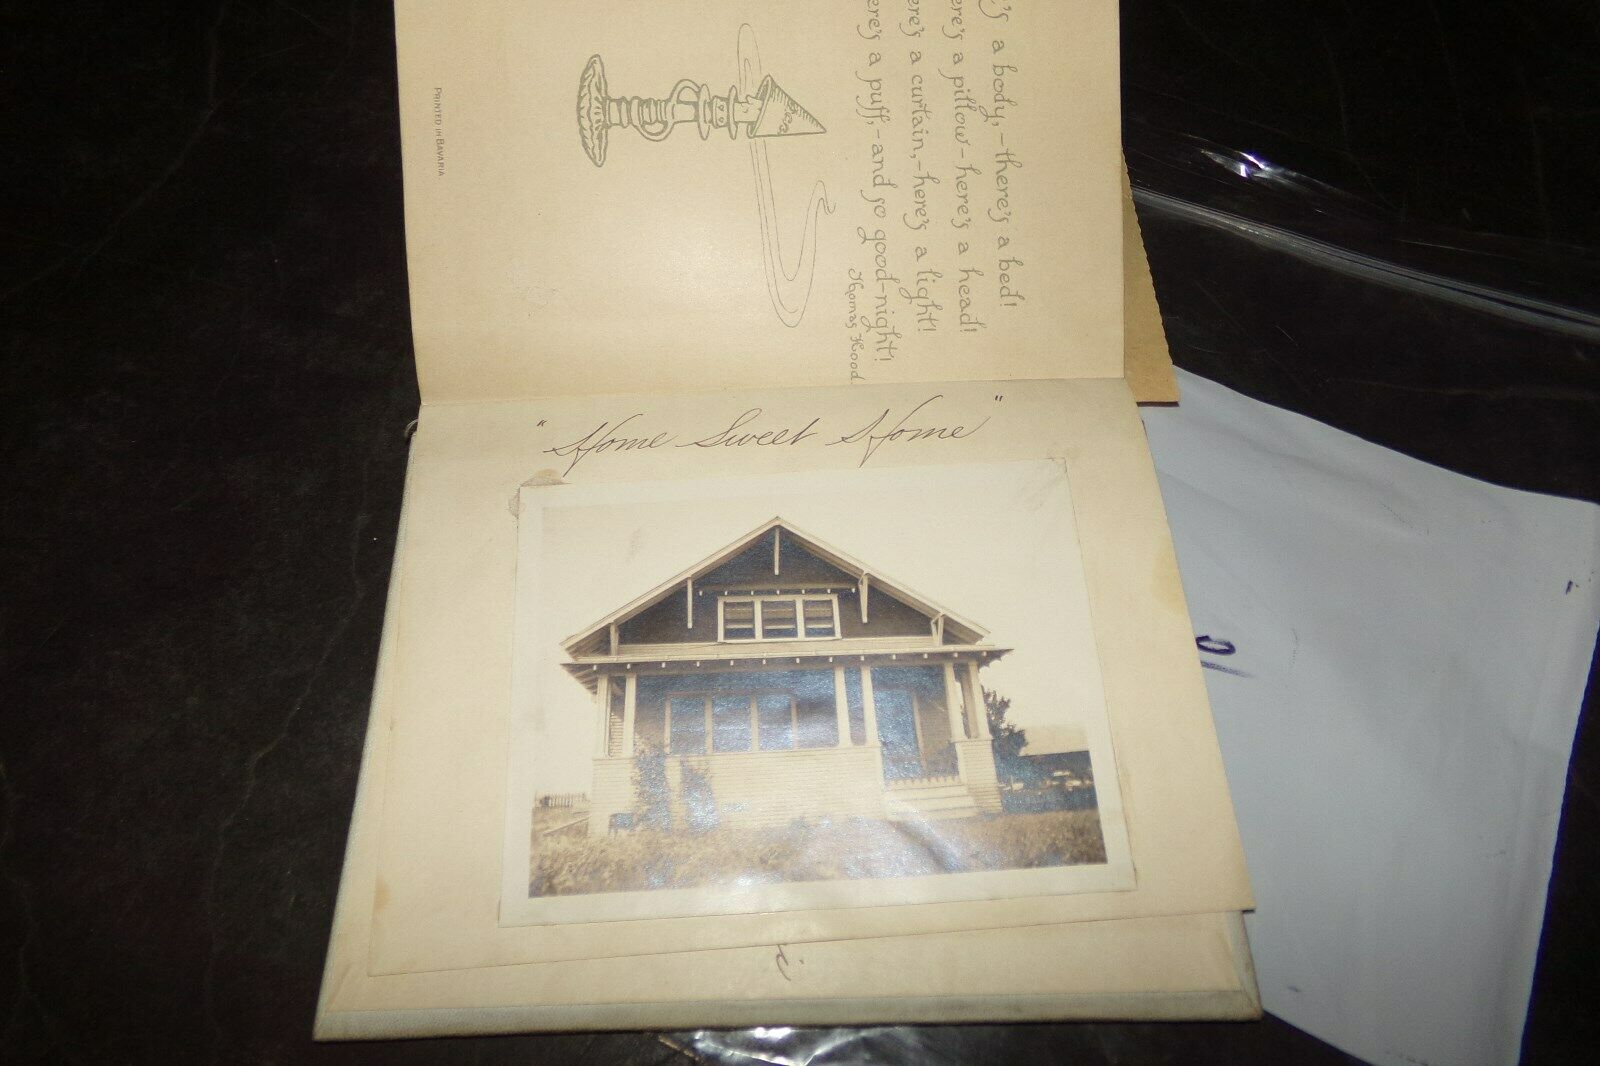 's a body,-there's a bed!
here's a pillow-here's a head!
ere's a curtain,-here's a light!
ere's a puff,-and so good-night!
Thomas Hood
PRINTED IN BAVARIA.
"Home Sweet Home"